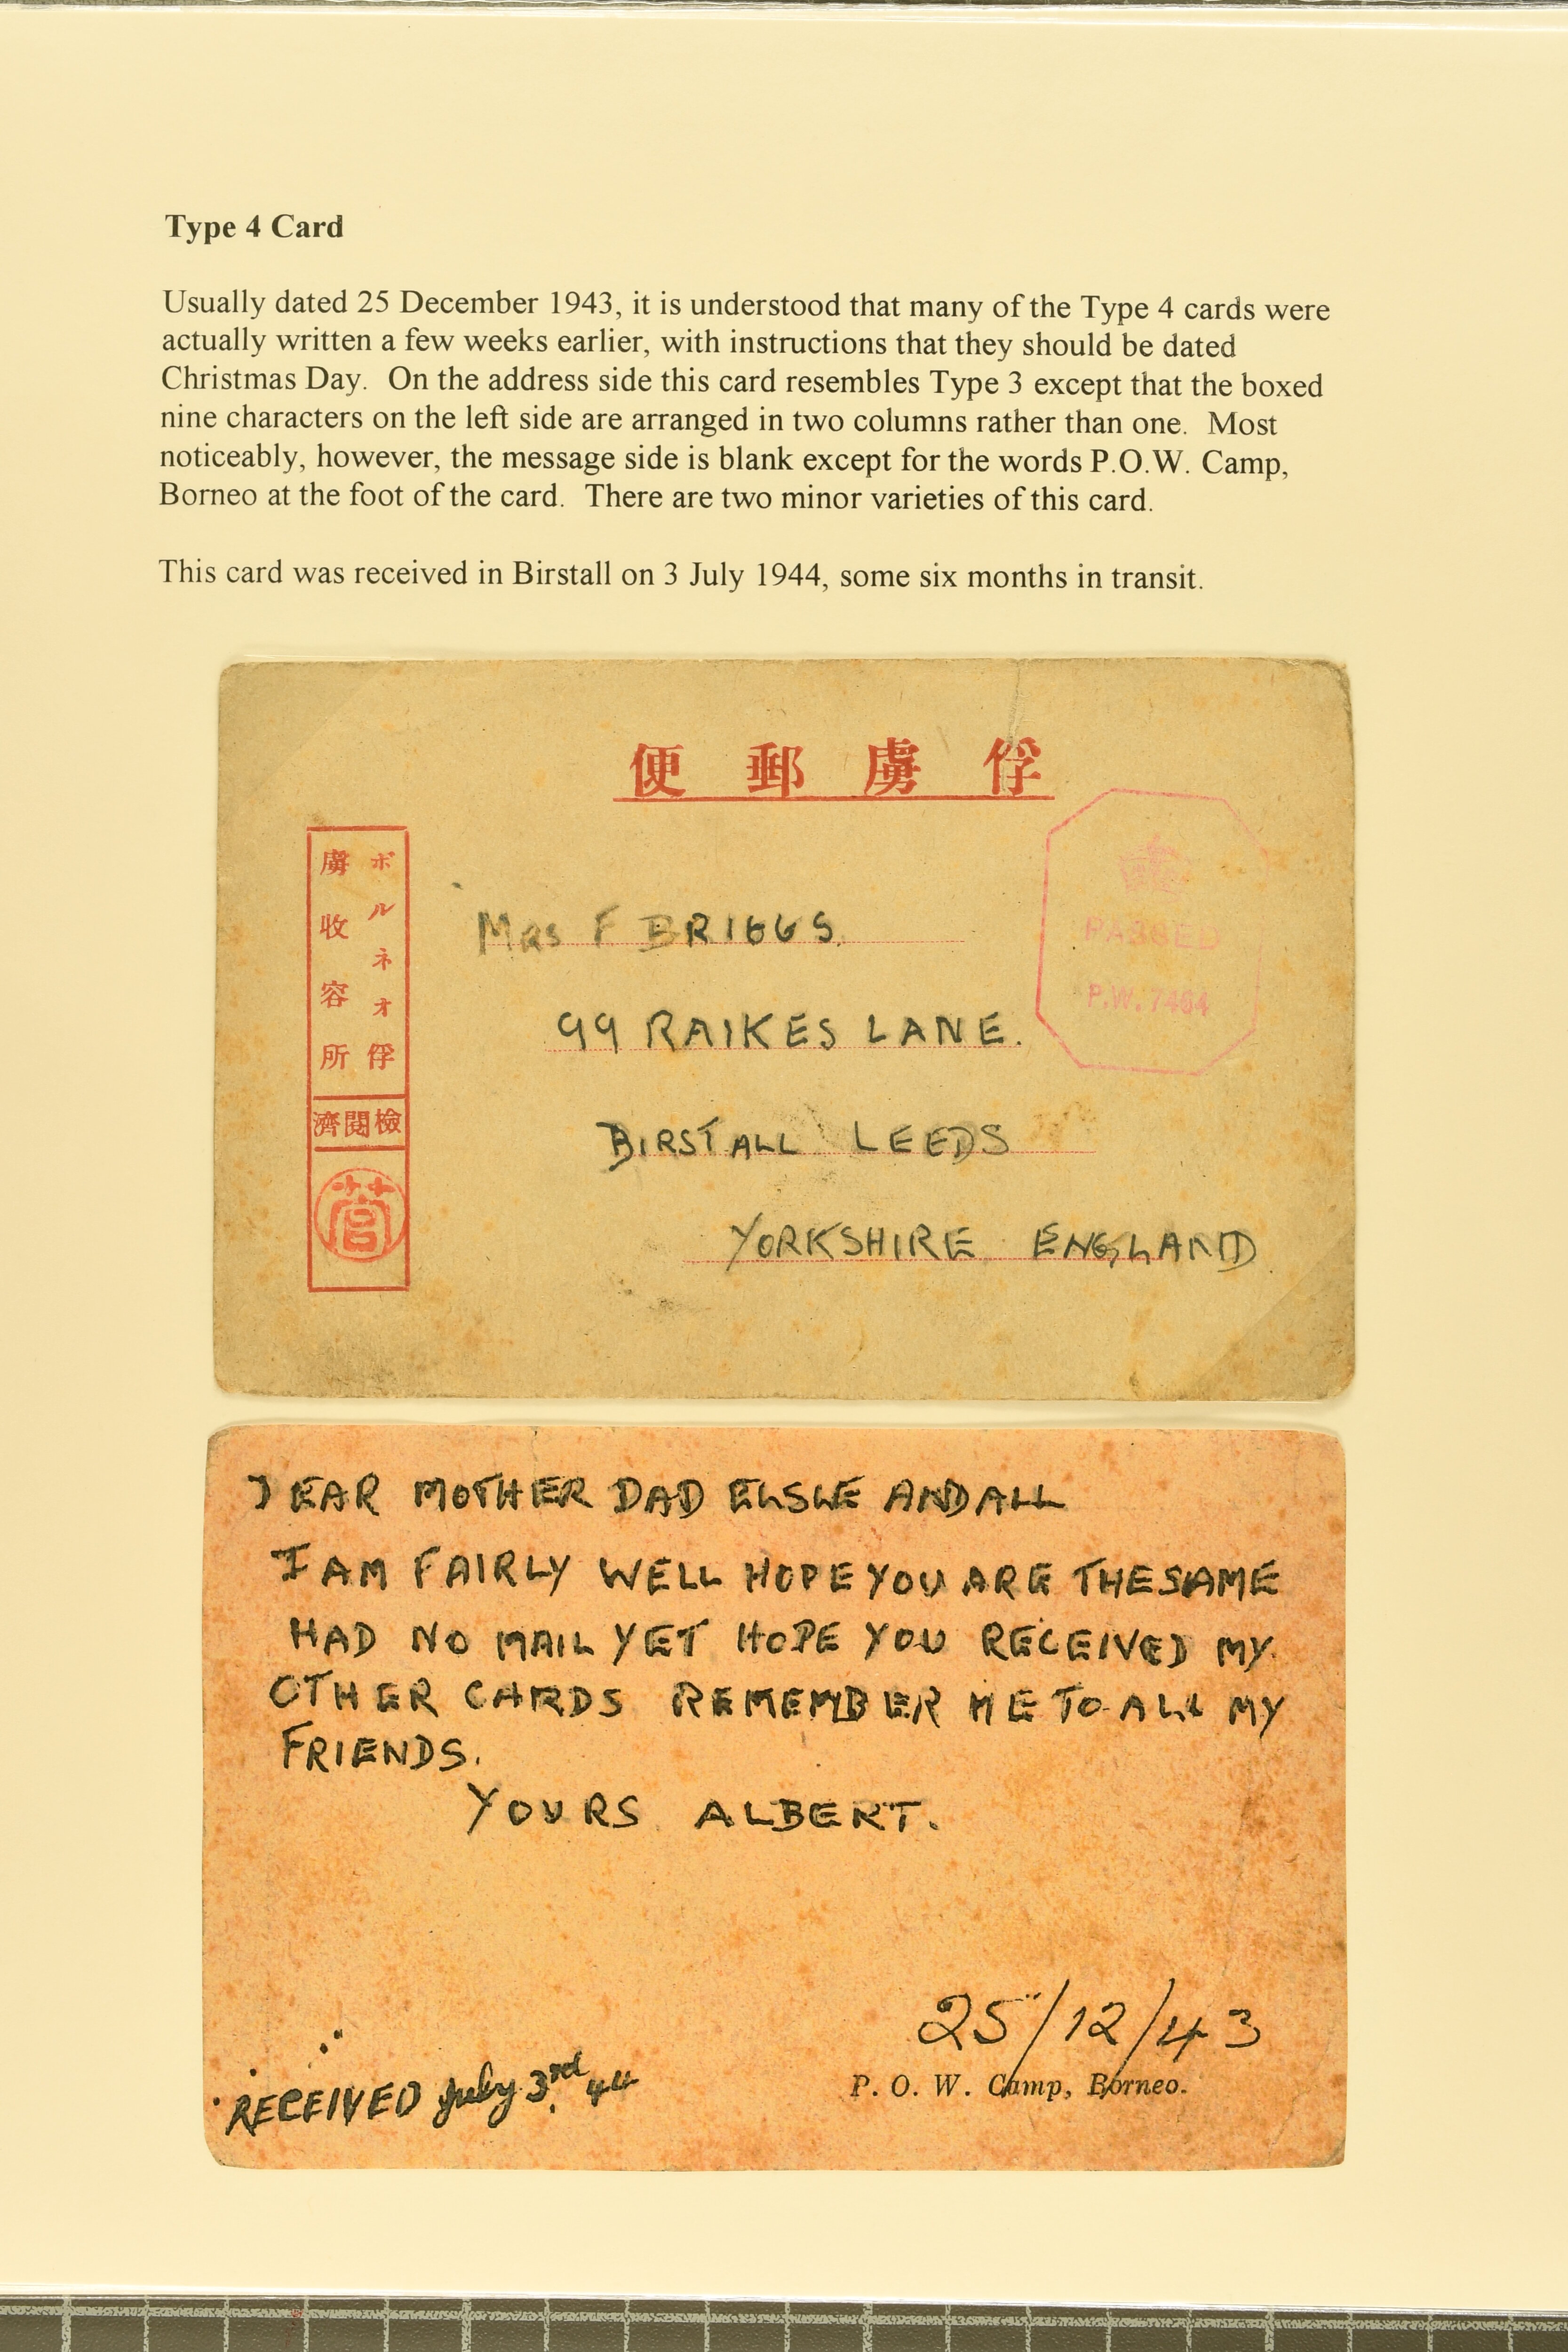 Type 4 Card
Usually dated 25 December 1943, it is understood that many of the Type 4 cards were
actually written a few weeks earlier, with instructions that they should be dated
Christmas Day. On the address side this card resembles Type 3 except that the boxed
nine characters on the left side are arranged in two columns rather than one. Most
noticeably, however, the message side is blank except for the words P.O.W. Camp,
Borneo at the foot of the card. There are two minor varieties of this card.
This card was received in Birstall on 3 July 1944, some six months in transit.
俘虜郵便
ボルネオ俘
虜收容所
檢閱濟
菅
PASSED
P.W. 7464
MRS F BRIGGS.
99 RAIKES LANE.
BIRSTALL LEEDS
YORKSHIRE ENGLAND
DEAR MOTHER DAD ELSIE AND ALL
I AM FAIRLY WELL HOPE YOU ARE THE SAME
HAD NO MAIL YET HOPE YOU RECEIVED MY
OTHER CARDS REMEMBER ME TO ALL MY
FRIENDS.
YOURS ALBERT.
25/12/43
P. O. W. Camp, Borneo.
RECEIVED July 3rd 44